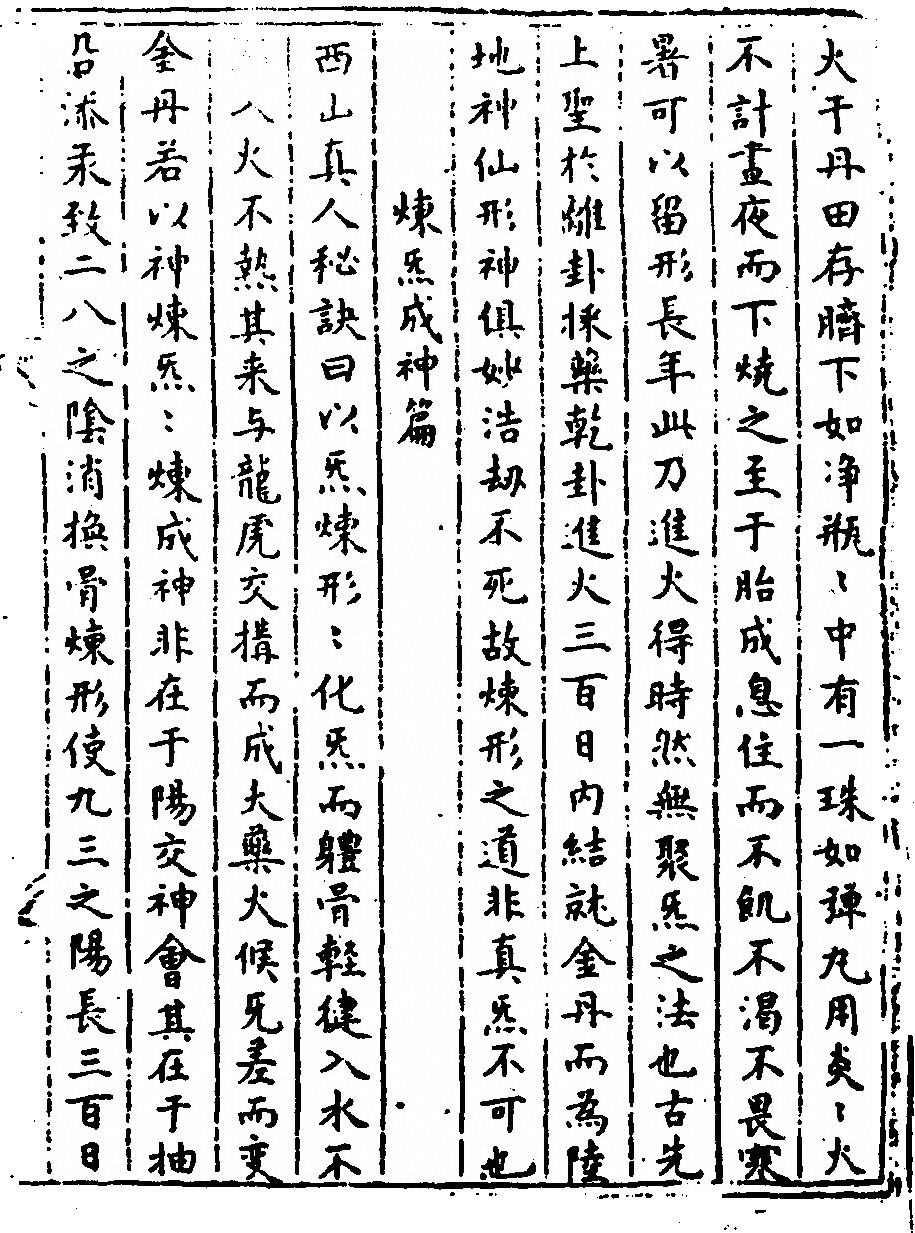 火于丹田存臍下如净瓶〻中有一珠如弹丸用炎〻火
不計晝夜而下燒之至于胎成息住而不飢不渴不畏寒
暑可以留形長年此乃進火得時然無聚炁之法也古先
上聖於離卦採藥乾卦進火三百日内結就金丹而為陸
地神仙形神俱妙浩劫不死故煉形之道非真炁不可也
煉炁成神篇
西山真人秘訣曰以炁煉形〻化炁而軆骨輕健入水不
入火不熱其来与龍虎交搆而成大藥火候旡差而变
金丹若以神煉炁〻煉成神非在于陽交神會其在于抽
鈆添汞致二八之陰消换骨煉形使九三之陽長三百日